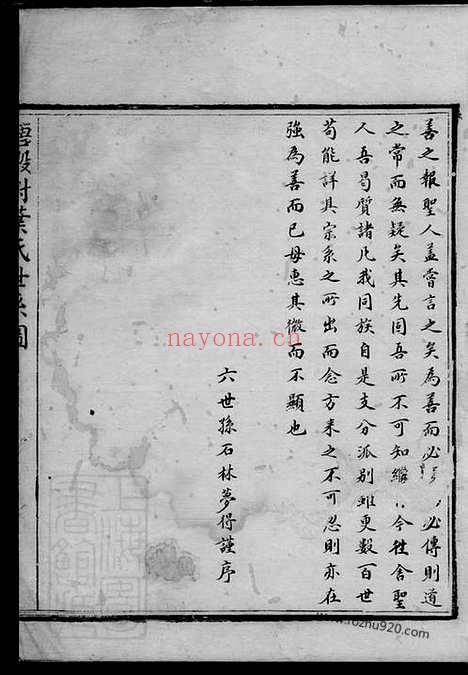 善之報聖人蓋嘗言之矣為善而必必傳則道
之常而無疑矣其先固吾所不可知繼今往舍聖
人吾曷質諸凡我同族自是支分派別雖更數百世
苟能詳其宗系之所出而念方來之不可忍則亦在
強為善而已毋患其微而不顯也
六世孫石林夢得謹序
葉氏世系圖
nayona.cn
www.rozhu920.com